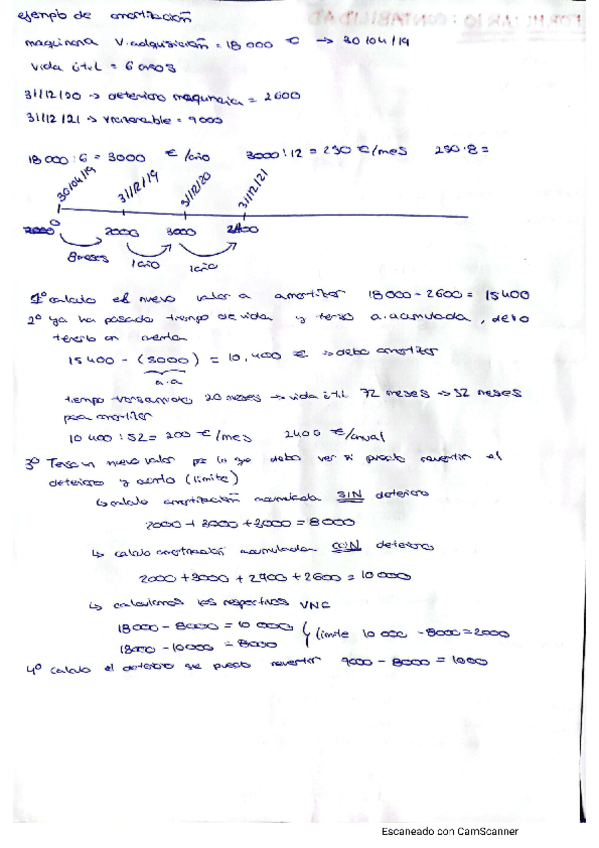 ejemplo de amortización
maquinaria V.adquisición = 18 000 € → 30/04/19
vida útil = 6 años
31/12/20 → deterioro maquinaria = 2600
31/12/21 → v.razonable = 9000
18 000 : 6 = 3000 €/año 3000 : 12 = 250 €/mes 250·8 =
30/04/19 31/12/19 31/12/20 31/12/21
0 2000 3000 2400
8 meses 1 año 1 año
1º calculo el nuevo valor a amortizar 18 000 - 2600 = 15 400
2º ya ha pasado tiempo de vida y tengo a.acumulada, debo
tenerlo en cuenta
15 400 - (5000) = 10.400 € → debo amortizar
a.a
tiempo 20 meses → vida útil 72 meses → 52 meses
para amortizar
10 400 : 52 = 200 €/mes 2400 €/anual
3º Tengo un nuevo valor por lo que debo ver si puedo revertir el
deterioro y cuanto (límite)
↳ calculo amortización acumulada SIN deterioro
2000 + 3000 + 3000 = 8000
↳ calculo amortización acumulada CON deterioro
2000 + 3000 + 2400 + 2600 = 10 000
↳ calculamos los respectivos VNC
18 000 - 8000 = 10 000
18000 - 10000 = 8000
límite 10 000 - 8000 = 2000
4º calculo el deterioro que puedo revertir 9000 - 8000 = 1000
Escaneado con CamScanner